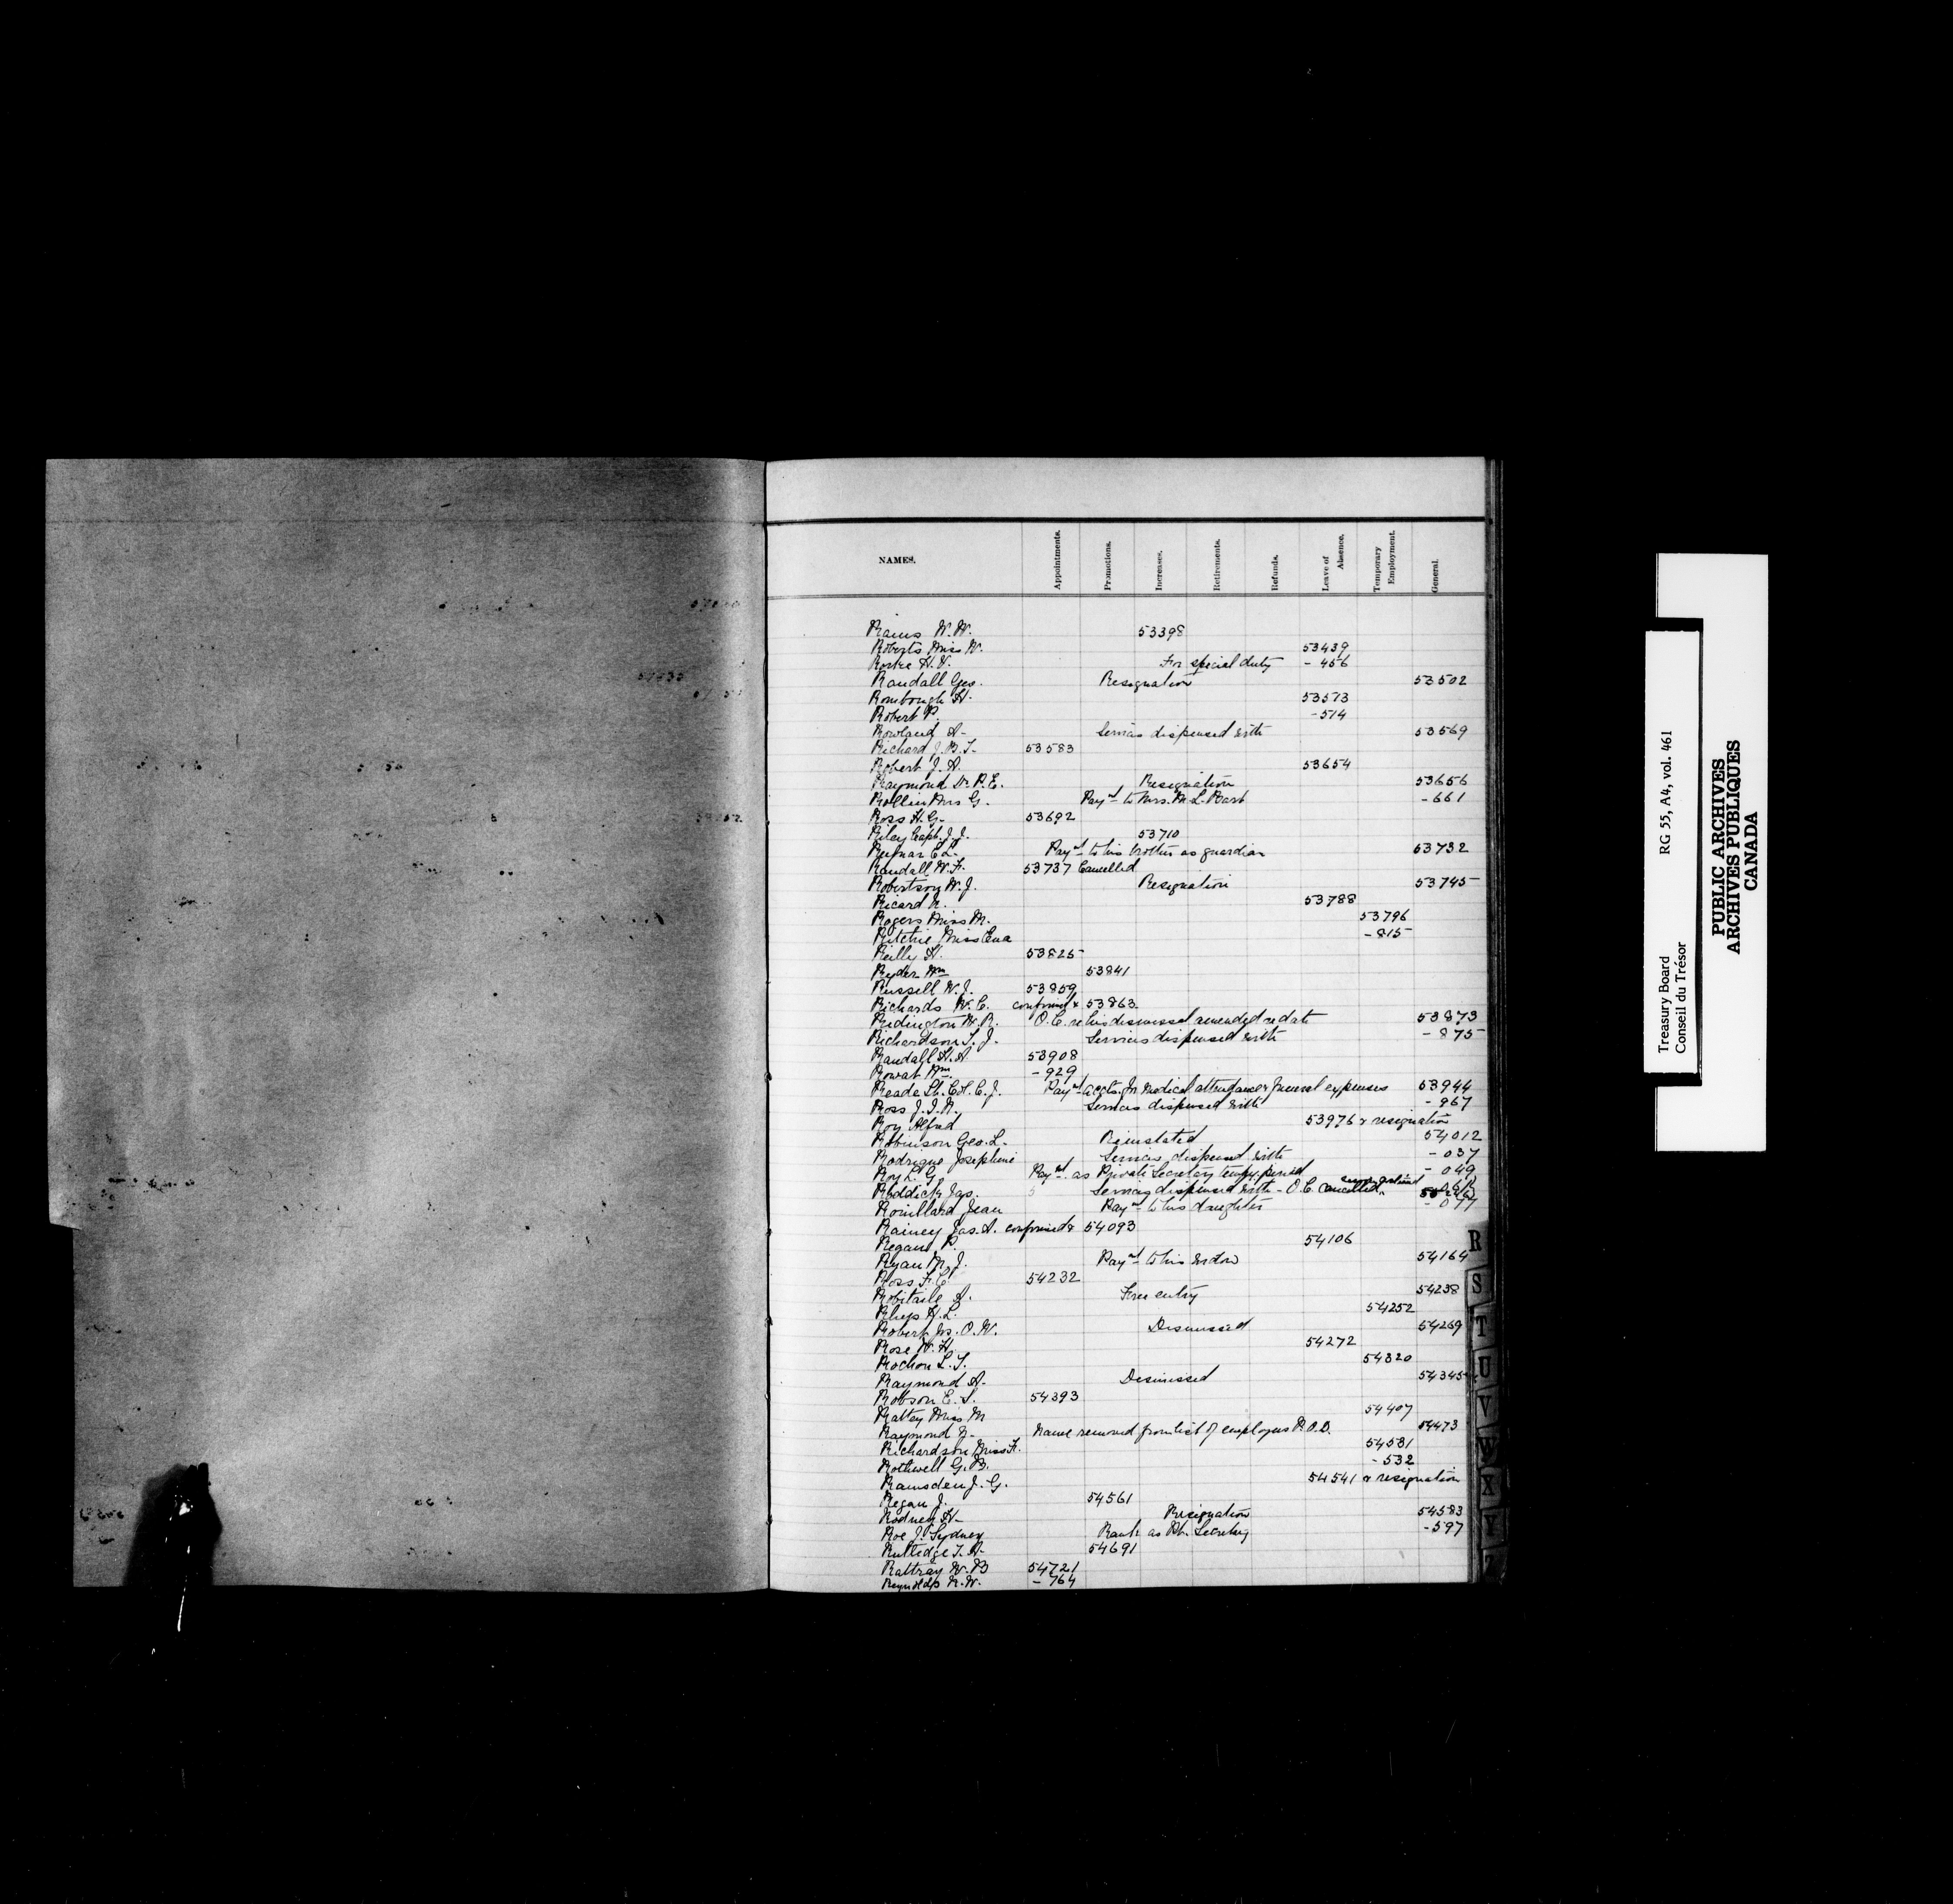 NAMES. Appointments. Promotions. Increases. Retirements. Refunds. Leave of Absence. Temporary Employment. General.
Rains W. W. 53398
Roberts Miss W. 53439
H. V. For special duty - 456
Randall Geo. Resignation 53502
Rombough H. 53573
Robert P. - 514
Rowland A- Services dispensed with 53569
Richard J. B. T- 53583
Robert J. A. 53654
Raymond Dr. P. E. Resignation 53656
Rollin Mrs G. Paymt to Mrs. M. L. - 661
Ross H. G- 53692
Riley Capt. J. J. 53710
E L. Paymt to his brother as guardian 53732
Randall W. F. 53737 Cancelled
Robertson W. J. Resignation 53745
Ricard N. 53788
Rogers Miss M. 53796
Ritchie Miss Eva - 815
Reilly H. 53825
Ryder Wm 53841
Russell W. J. 53859
Richards W. C. confirmed & 53863
Ridington W. R. O. C. re his dismissal amended re date 53873
Richardson S. J. Services dispensed with - 875
Randall H. A. 53908
Rowat Wm. - 929
Reade Lt. Col. E. J. Paymt accts. for medical attendance & funeral expenses 53944
Ross J. J. R. Services dispensed with - 967
Roy Alfred 53976 & resignation
Robinson Geo. L. Reinstated 54012
Rodrigue Josephine Services dispensed with - 037
Roy L. G. Paymt. as Private Secretary tempy. period - 049
Roddick Jas. Services dispensed with - O. C. cancelled
Rouillard Jean Paymt to his daughter - 077
Rainey Jas. A. confirmed & 54093
Regan P. 54106
Ryan M. J. Paymt to his widow 54164
Ross F. C. 54232
Robitaile A. Free entry 54238
H. L. 54252
Robert Jos. O. W. Dismissed 54269
Rose W. H. 54272
Rochon L. T. 54320
Raymond A- Dismissed 54345
Robson E. S. 54393
Rattey Miss M 54407
Raymond J- Name removed from list of employees P.O.D. 54473
Richardson Miss F. 54531
Rothwell G. B. - 532
Ramsden J. G. 54541 & resignation
Regan J. 54561
Rodney H- Resignation 54583
Roe J. Sydney Rank as Pte. Secretary - 597
Rutledge T. A- 54691
Rattray W. B 54721
Reynolds N. W. - 764
R
S
T
U
V
W
X
Y
Treasury Board RG 55, A4, vol. 461
Conseil du Trésor
PUBLIC ARCHIVES
ARCHIVES PUBLIQUES
CANADA